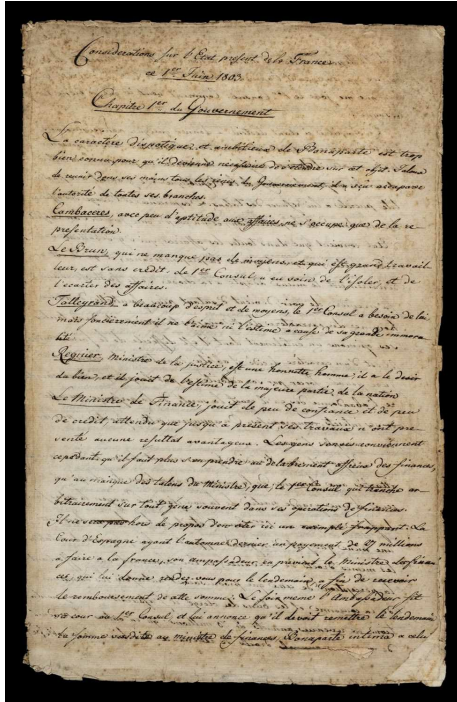 Considerations sur l'Etat présent de la France
ce 1er Juin 1803.
Chapitre 1er du Gouvernement
Le caractère despotique et ambitieux de Bonaparte est trop
bien connu pour qu'il devienne nécessaire de s'étendre sur cet objet. Jaloux
de reunir dans ses mains tous les du Gouvernement, il a sçu accaparer
l'autorité de toutes ses branches.
Cambaceres, avec peu d'aptitude aux affaires, ne s'occupe que de la re
presentation.
Le Brun, qui ne manque pas de moyens, et qui est grand travail-
leur, est sans crédit. Le 1er Consul a eu soin de l'isoler, et de
l'ecarter des affaires.
Talleyrand a beaucoup d'esprit et de moyens, le 1er Consul a besoin de lui
mais foncièrement il ne l'aime ni l'estime à cause de sa grande immora
lité.
Regnier, ministre de la justice, est un honnette homme: il a le desir
du bien, et il jouit de l'estime de la majeure partie de la nation
Le Ministre de Finance, jouit de peu de confiance et de peu
de credit attendu que jusqu'à présent ses travaux n'ont pre-
senté aucune resultat avantageux. Les gens sensés conviennent
cependant qu'il faut plus s'en prendre au delabrement affreux des finances,
qu'au manque des talens du Ministre, que le 1er Consul qui tranche ar-
bitrairement sur tout gêne souvent dans ses opérations de finances.
Il ne sera pas hors de propos d'en citer ici un exemple frappant. La
Cour d'Espagne ayant l'automne dernier un payement de 27 millions
à faire à la france, son ambassadeur en prévient le Ministre des finan
ces, qui lui donne rendez-vous pour le lendemain, a fin de recevoir
le remboursement de cette somme. Le soir meme l'Ambassadeur fit
sa cour au 1er Consul et lui annonce qu'il devoit remettre le lendemain
la somme susdite au ministre de finances. Bonaparte intima a celui